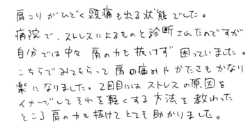 肩こりがひどく頭痛も出る状態でした。
病院で、ストレスによるものと診断されたのですが
自分では中々肩の力も抜けず困っていました。
こちらでみてもらって肩の痛みやかたさもかなり
楽になりました。2回目にはストレスの原因を
イメージしてそれを軽くする方法を教わった
ところ肩の力も抜けてとても助かりました。